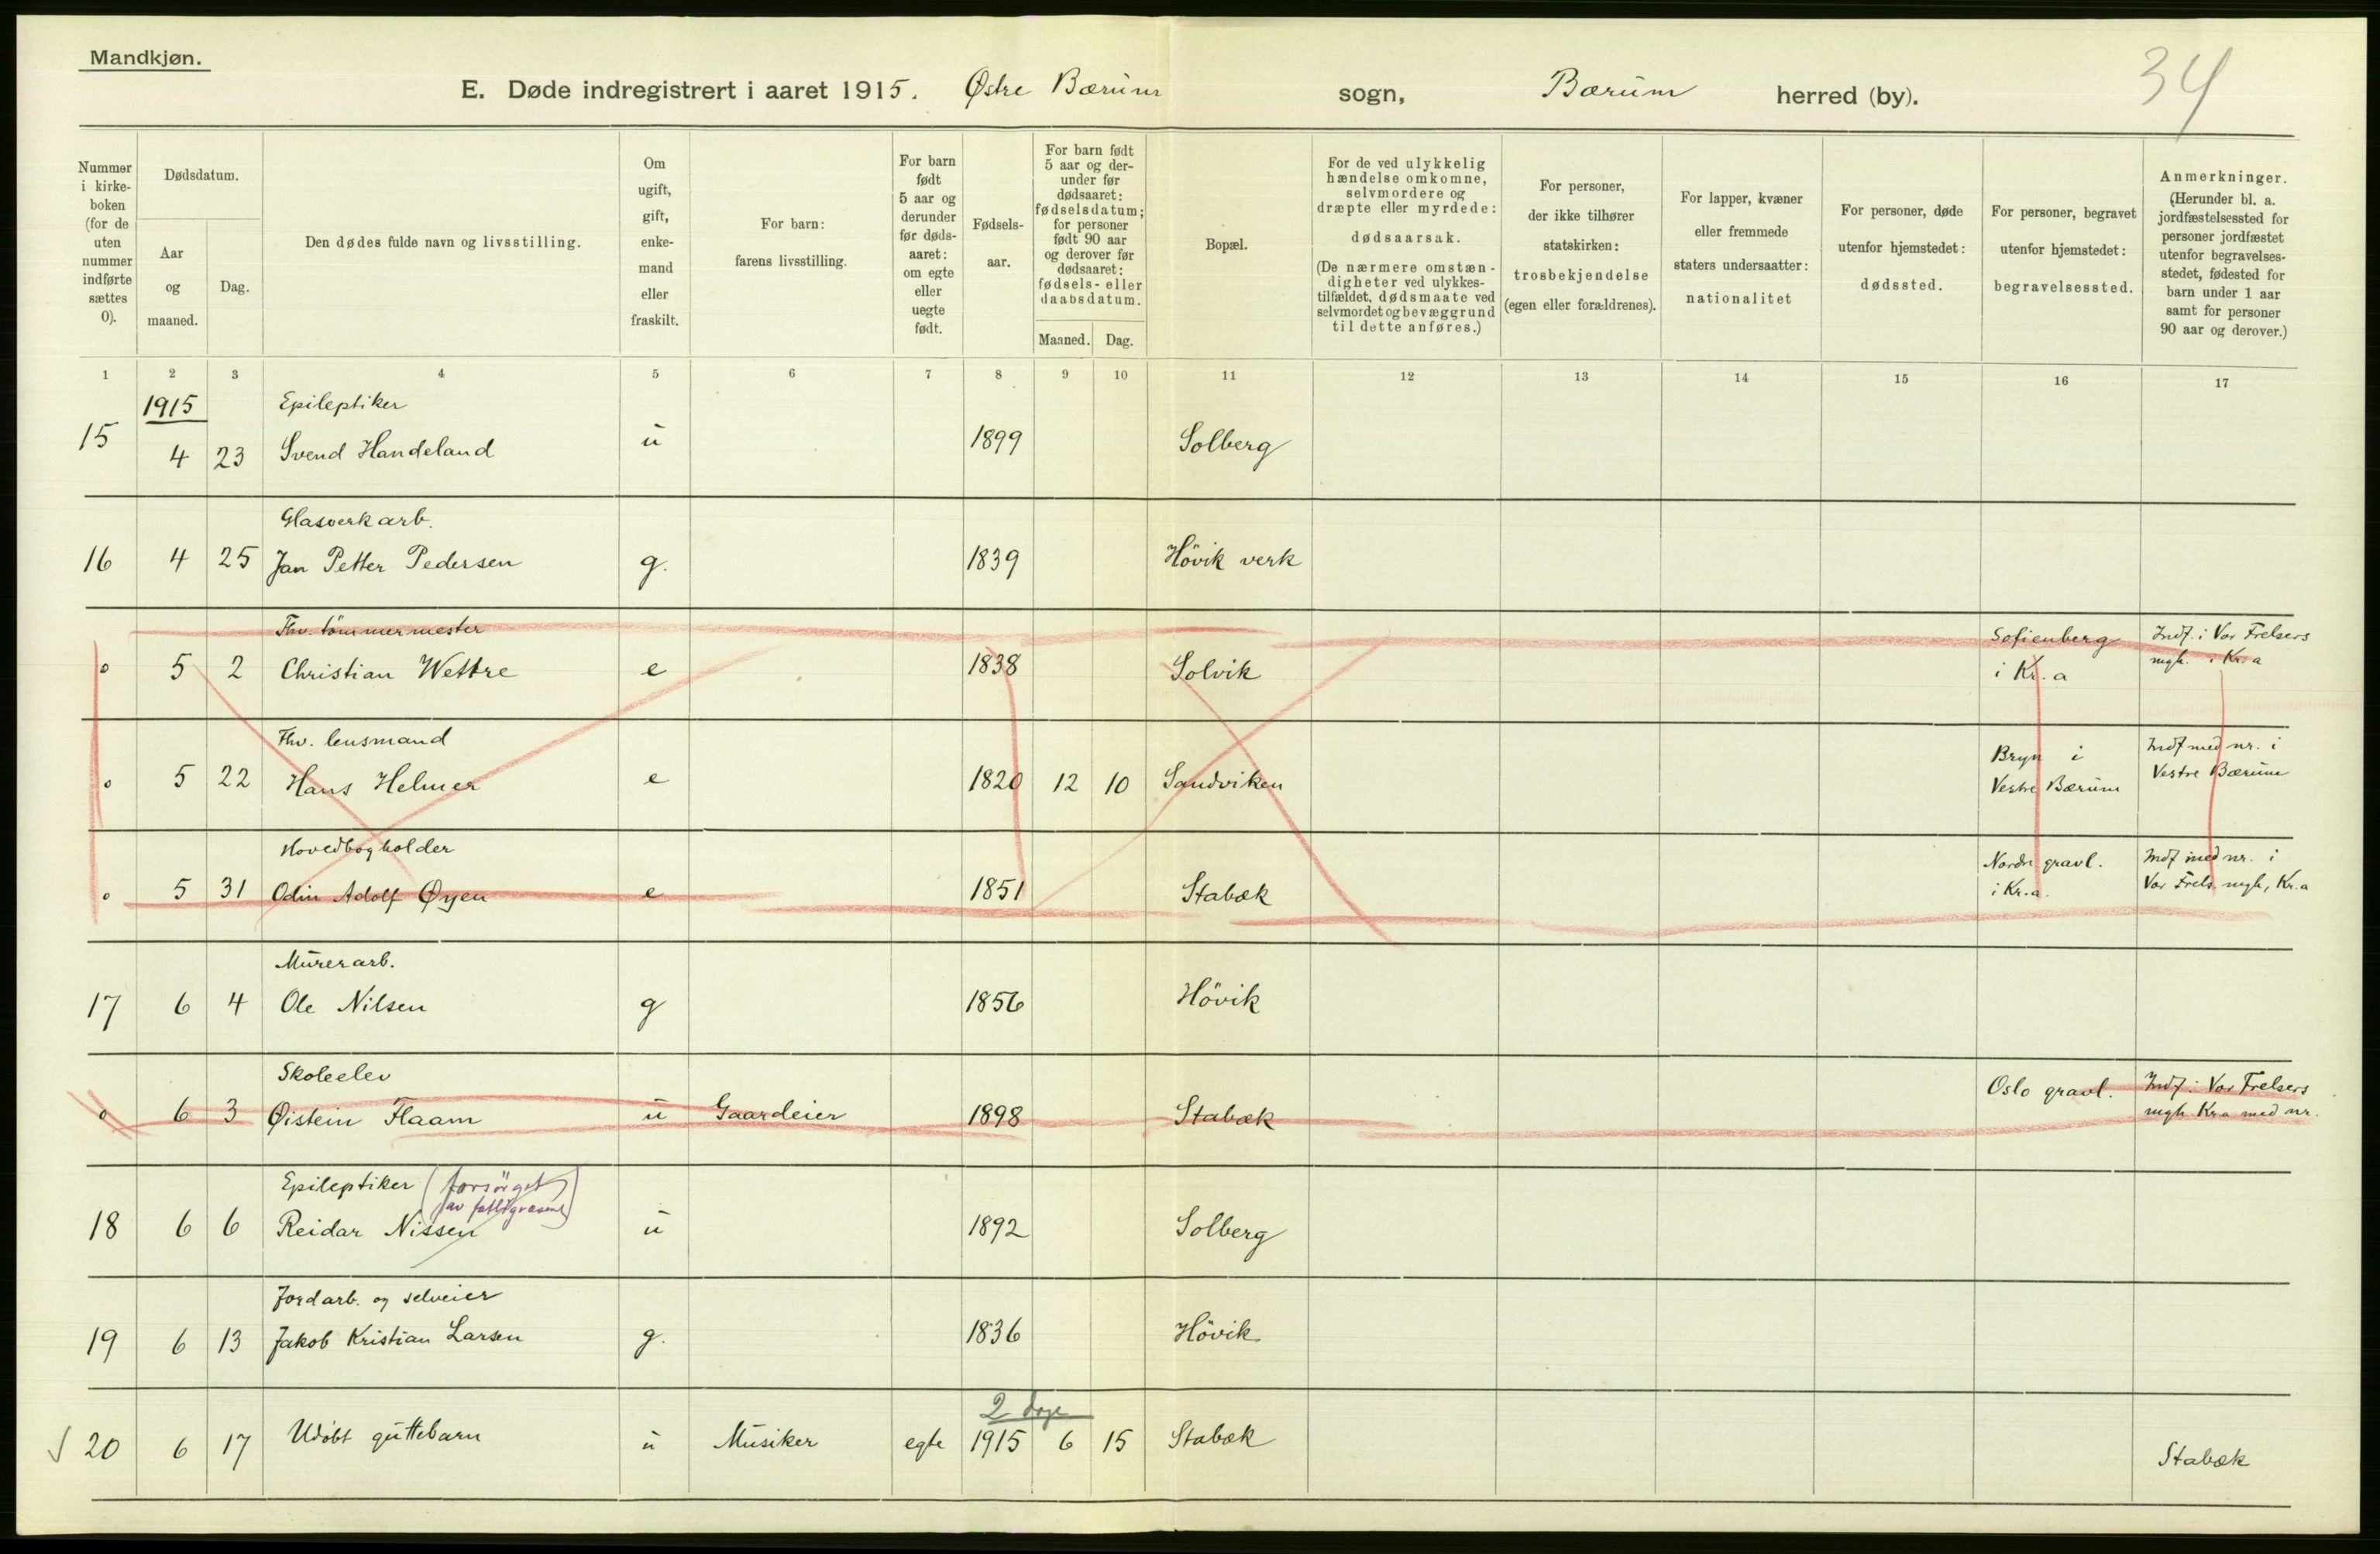 Mandkjøn.
34
E. Døde indregistrert i aaret 1915. Østre Bærum sogn, Bærum herred (by).
Nummer i kirke- boken (for de uten nummer indførte sættes 0).
Dødsdatum.
Aar og maaned.
Dag.
Den dødes fulde navn og livsstilling.
Om ugift, gift, enke- mand eller fraskilt.
For barn: farens livsstilling.
For barn født 5 aar og derunder før døds- aaret: om egte eller uegte født.
Fødsels- aar.
For barn født 5 aar og der- under før dødsaaret: fødselsdatum; for personer født 90 aar og derover før dødsaaret: fødsels- eller daabsdatum.
Maaned. Dag.
Bopæl.
For de ved ulykkelig hændelse omkomne, selvmordere og dræpte eller myrdede: dødsaarsak. (De nærmere omstæn- digheter ved ulykkes- tilfældet, dødsmaate ved selvmordet og bevæggrund til dette anføres.)
For personer, der ikke tilhører statskirken: trosbekjendelse (egen eller forældrenes).
For lapper, kvæner eller fremmede staters undersaatter: nationalitet
For personer, døde utenfor hjemstedet: dødssted.
For personer, begravet utenfor hjemstedet: begravelsessted.
Anmerkninger. (Herunder bl. a. jordfæstelsessted for personer jordfæstet utenfor begravelses- stedet, fødested for barn under 1 aar samt for personer 90 aar og derover.)
1 2 3 4 5 6 7 8 9 10 11 12 13 14 15 16 17
1915 Epileptiker
15 4 23 Svend Handeland u 1899 Solberg
Glasverkarb.
16 4 25 Jan Petter Pedersen g. 1839 Hövik verk
Fhv. tömmermester Sofienberg Indf. i Vor Frelsers
0 5 2 Christian Wettre e 1838 Solvik i Kr.a mgh. i Kr.a
Fhv. lensmand Bryn i Indf med nr. i
0 5 22 Hans Helmer e 1820 12 10 Sandviken Vestre Bærum Vestre Bærum
Hovedbogholder Nordre gravl. Indf med nr. i
0 5 31 Odin Adolf Øyen e 1851 Stabæk i Kr.a. Vor Frels. mgh, Kr.a
Murerarb.
17 6 4 Ole Nilsen g 1856 Hövik
Skoleelev Oslo gravl. Indf i Vor Frelsers
0 6 3 Øistein Flaam u Gaardeier 1898 Stabæk mgh Kr.a med nr.
Epileptiker (forsörget
av fattigvæsenet)
18 6 6 Reidar Nissen u 1892 Solberg
Jordarb. og selveier
19 6 13 Jakob Kristian Larsen g. 1836 Hövik
2 dage
20 6 17 Udöbt guttebarn u Musiker egte 1915 6 15 Stabæk Stabæk